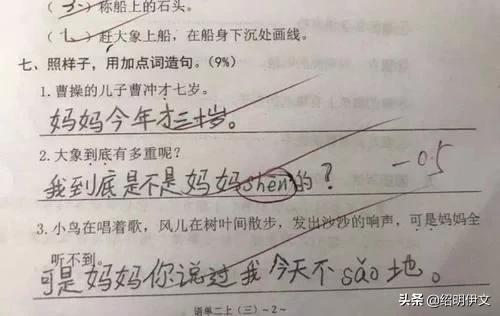 （3）称船上的石头。
（1）赶大象上船，在船身下沉处画线。
七、照样子，用加点词造句。（9%）
1.曹操的儿子曹冲才七岁。
妈妈今年才三十岁。
2.大象到底有多重呢？
-0.5
我到底是不是妈妈shēn的？
3.小鸟在唱着歌，风儿在树叶间散步，发出沙沙的响声，可是妈妈全
听不到。
可是妈妈你说过我今天不sǎo地。
语单二上（三）～2～
头条 @绍明伊文